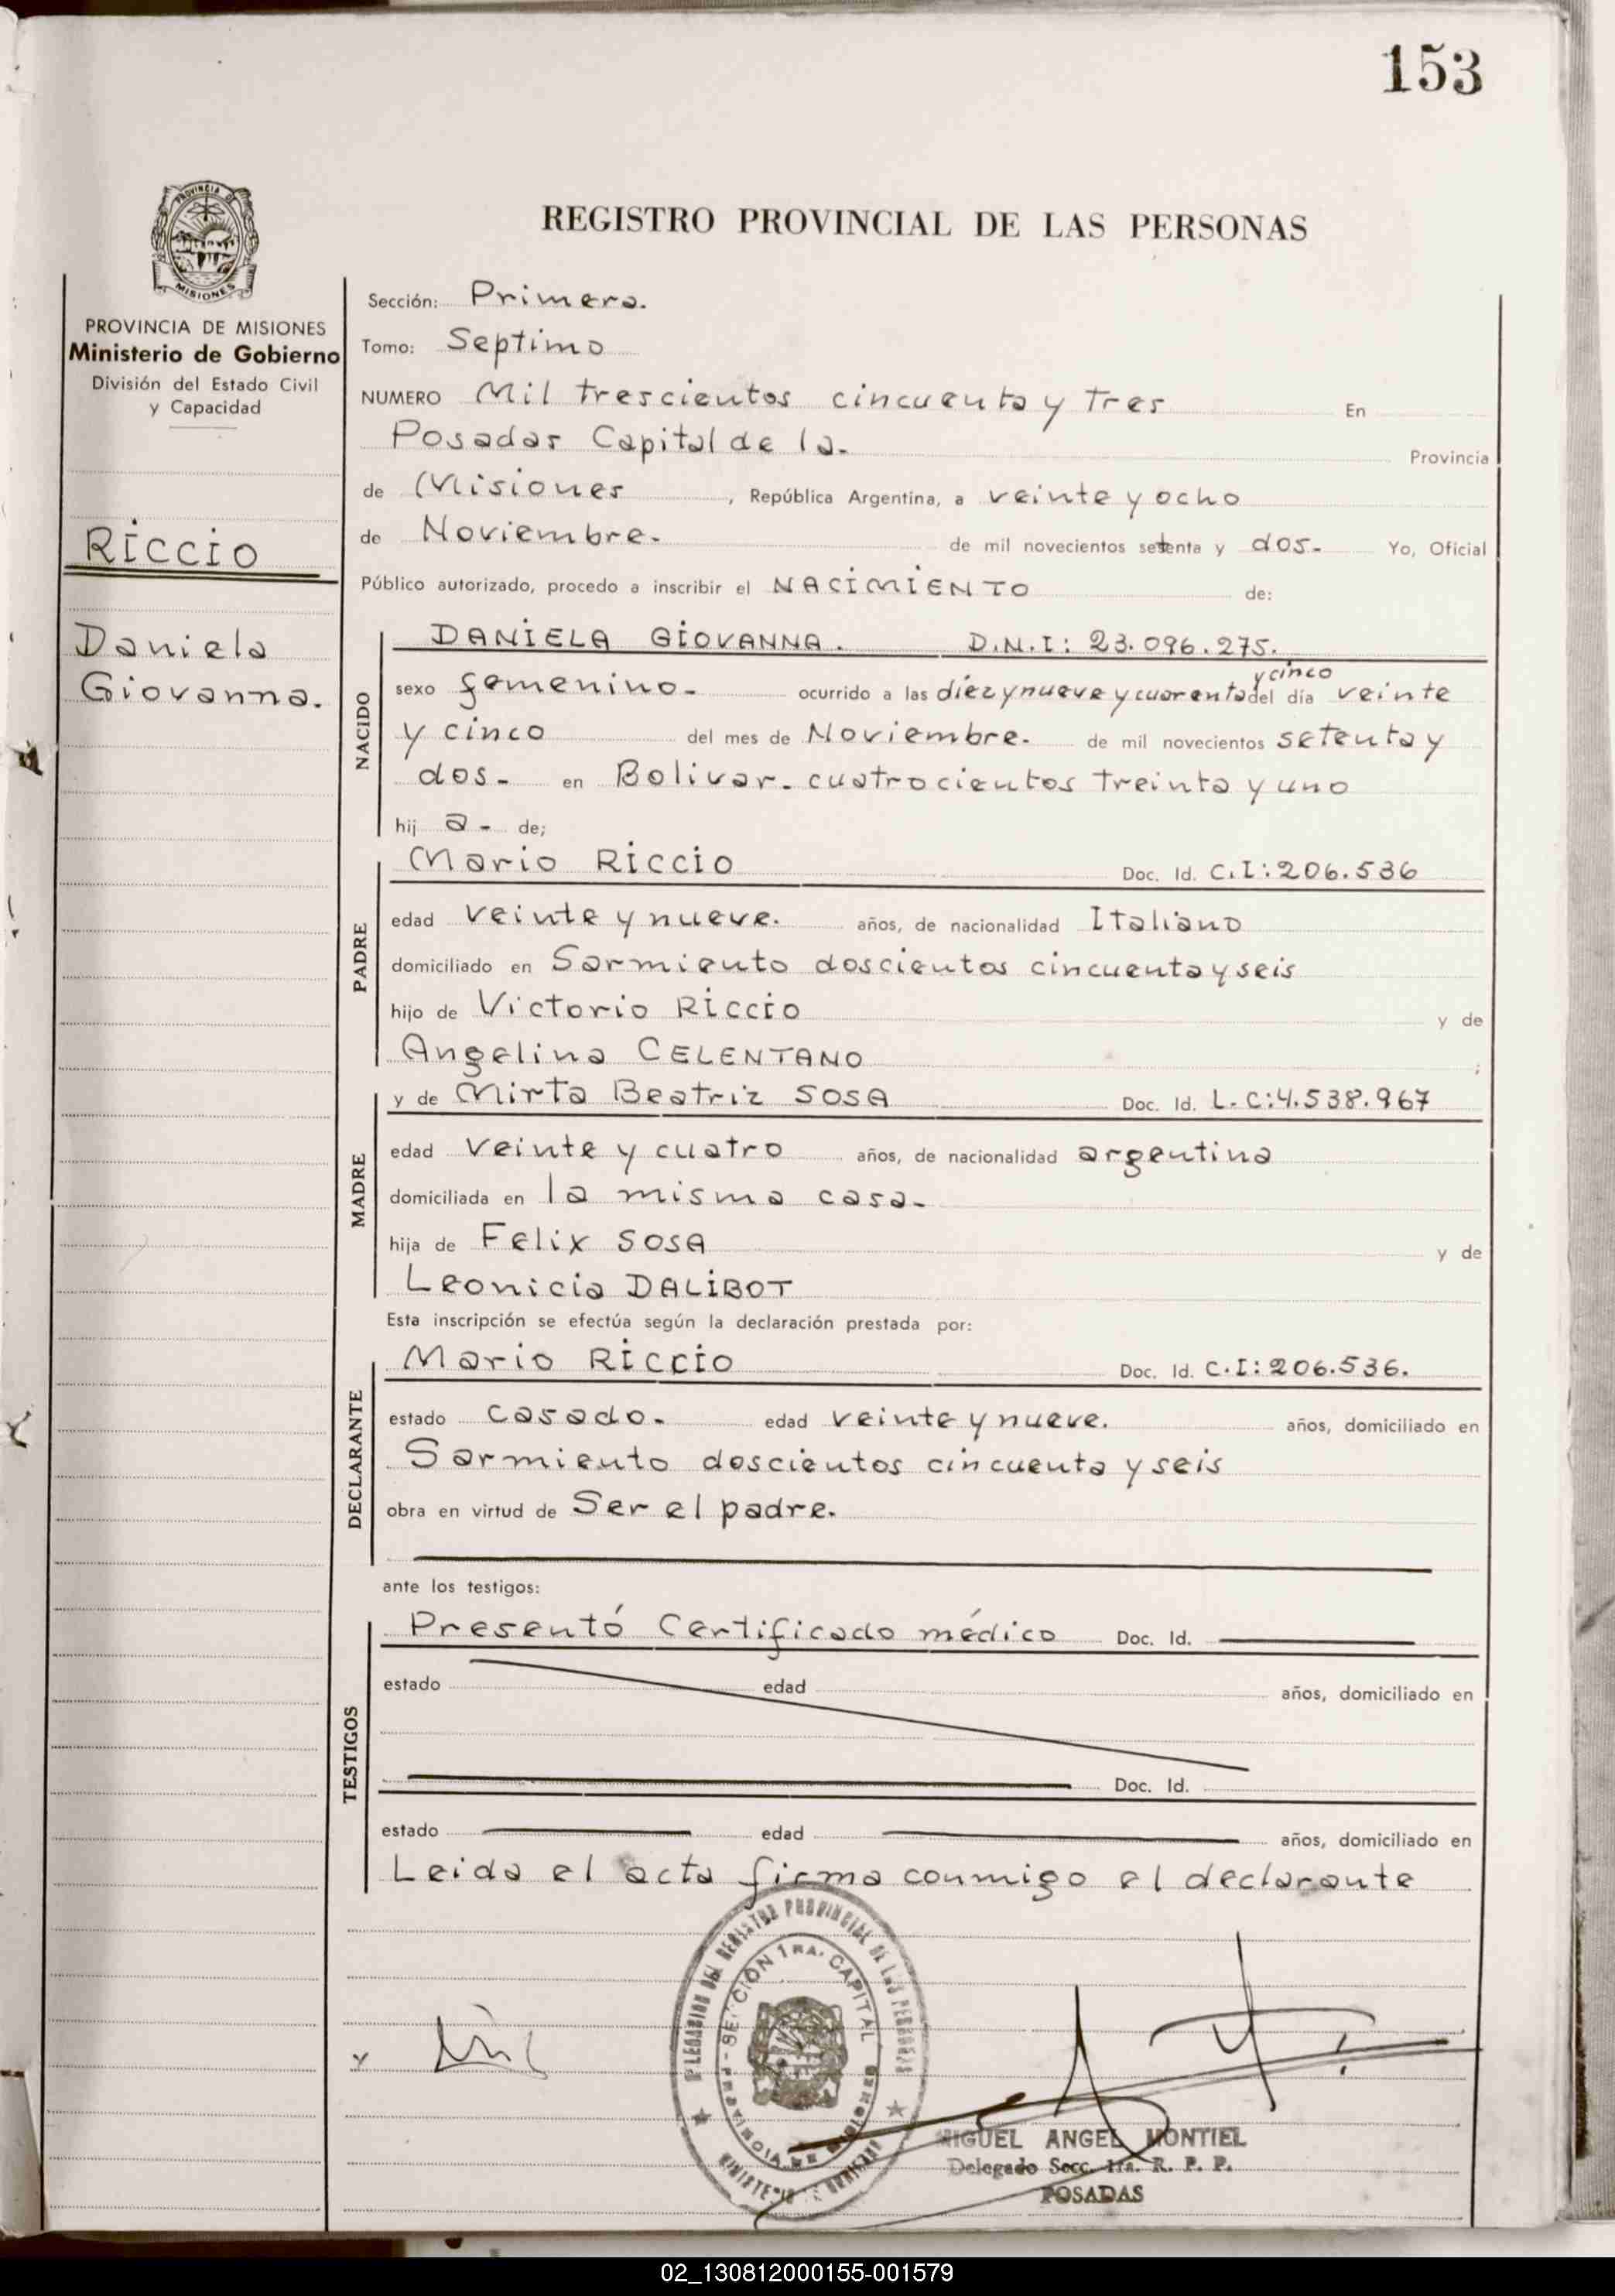 153
PROVINCIA DE
MISIONES
PROVINCIA DE MISIONES
Ministerio de Gobierno
División del Estado Civil
y Capacidad
RICCIO
Daniela
Giovanna.
REGISTRO PROVINCIAL DE LAS PERSONAS
Sección: Primera.
Tomo: Septimo
NUMERO Mil trescientos cincuenta y tres En
Posadas Capital de la. Provincia
de Misiones, República Argentina, a veinte y ocho
de Noviembre. de mil novecientos setenta y dos. Yo, Oficial
Público autorizado, procedo a inscribir el NACIMIENTO de:
NACIDO
DANIELA GIOVANNA. D.N.I: 23.096.275.
y cinco
sexo femenino. ocurrido a las diez y nueve y cuarenta del día veinte
y cinco del mes de Noviembre. de mil novecientos setenta y
dos. en Bolivar. cuatrocientos treinta y uno
hij a. de;
PADRE
Mario RICCIO Doc. Id. C.I: 206.536
edad veinte y nueve. años, de nacionalidad Italiano
domiciliado en Sarmiento doscientos cincuenta y seis
hijo de Victorio RICCIO y de
Angelina CELENTANO ;
MADRE
y de Mirta Beatriz SOSA Doc. Id. L.C: 4.538.967
edad veinte y cuatro años, de nacionalidad argentina
domiciliada en la misma casa.
hija de Felix SOSA y de
Leonicia DALIBOT
Esta inscripción se efectúa según la declaración prestada por:
DECLARANTE
Mario RICCIO Doc. Id. C.I: 206.536.
estado casado. edad veinte y nueve. años, domiciliado en
Sarmiento doscientos cincuenta y seis
obra en virtud de Ser el padre.
ante los testigos:
TESTIGOS
Presentó Certificado médico Doc. Id.
estado edad años, domiciliado en
Doc. Id.
estado edad años, domiciliado en
Leida el acta firma conmigo el declarante
y
DELEGACION DEL REGISTRO PROVINCIAL DE LAS PERSONAS
SECCION 1RA. CAPITAL
PROVINCIA DE MISIONES
MINISTERIO DE GOBIERNO
MIGUEL ANGEL MONTIEL
Delegado Secc. 1ra. R. P. P.
POSADAS
02_130812000155-001579